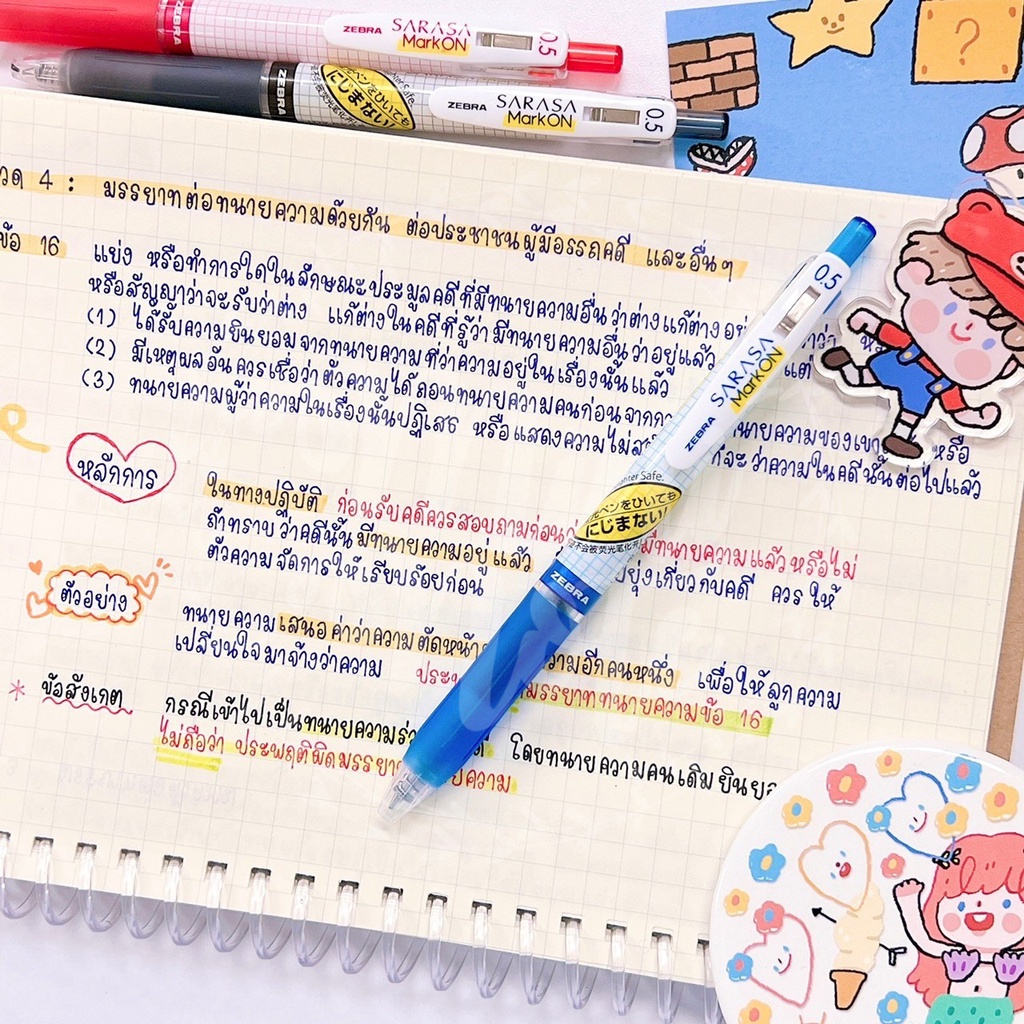 ZEBRA SARASA MarkON 0.5
ZEBRA SARASA MarkON 0.5
ZEBRA
にじまない!
?
วด 4 : มรรยาทต่อทนายความด้วยกัน ต่อประชาชนผู้มีอรรถคดี และอื่นๆ
ข้อ 16 แย่ง หรือทำการใดในลักษณะประมูลคดีที่มีทนายความอื่นว่าต่างแก้ต่าง
หรือสัญญาว่าจะรับว่าต่าง แก้ต่างในคดีที่รู้ว่ามีทนายความอื่นว่าอยู่แล้ว แต่
(1) ได้รับความยินยอมจากทนายความที่ว่าความอยู่ในเรื่องนั้นแล้ว
(2) มีเหตุผลอันควรเชื่อว่าตัวความได้ถอนทนายความคนก่อนจาก ทนายความของ หรือ
(3) ทนายความผู้ว่าความในเรื่องนั้นปฏิเสธ หรือแสดงความไม่ จะว่าความในคดีนั้นต่อไปแล้ว
0.5
SARASA
MarkON
ZEBRA
หลักการ
ในทางปฏิบัติ ก่อนรับคดีควรสอบถามก่อน มีทนายความแล้วหรือไม่
ถ้าทราบว่าคดีนั้นมีทนายความอยู่แล้ว ยุ่งเกี่ยวกับคดี ควรให้
ตัวความจัดการให้เรียบร้อยก่อน
ter Safe.
ペンをひいても
にじまない!
ZEBRA
ตัวอย่าง
ทนายความเสนอค่าว่าความตัดหน้า ความอีกคนหนึ่ง เพื่อให้ลูกความ
เปลี่ยนใจมาจ้างว่าความ มรรยาททนายความข้อ 16
* ข้อสังเกต
กรณีเข้าไปเป็นทนายความ โดยทนายความคนเดิมยินย
ไม่ถือว่า ประพฤติผิดมรรยา ความ